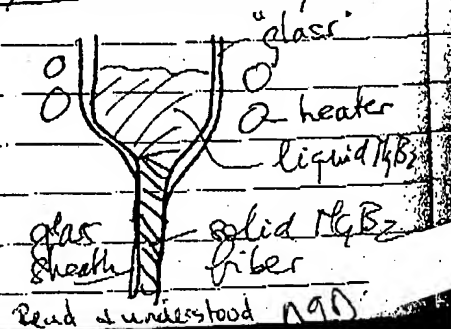 "glass"
heater
liquid MgB2
glass
sheath
solid MgB2
fiber
Read & understood